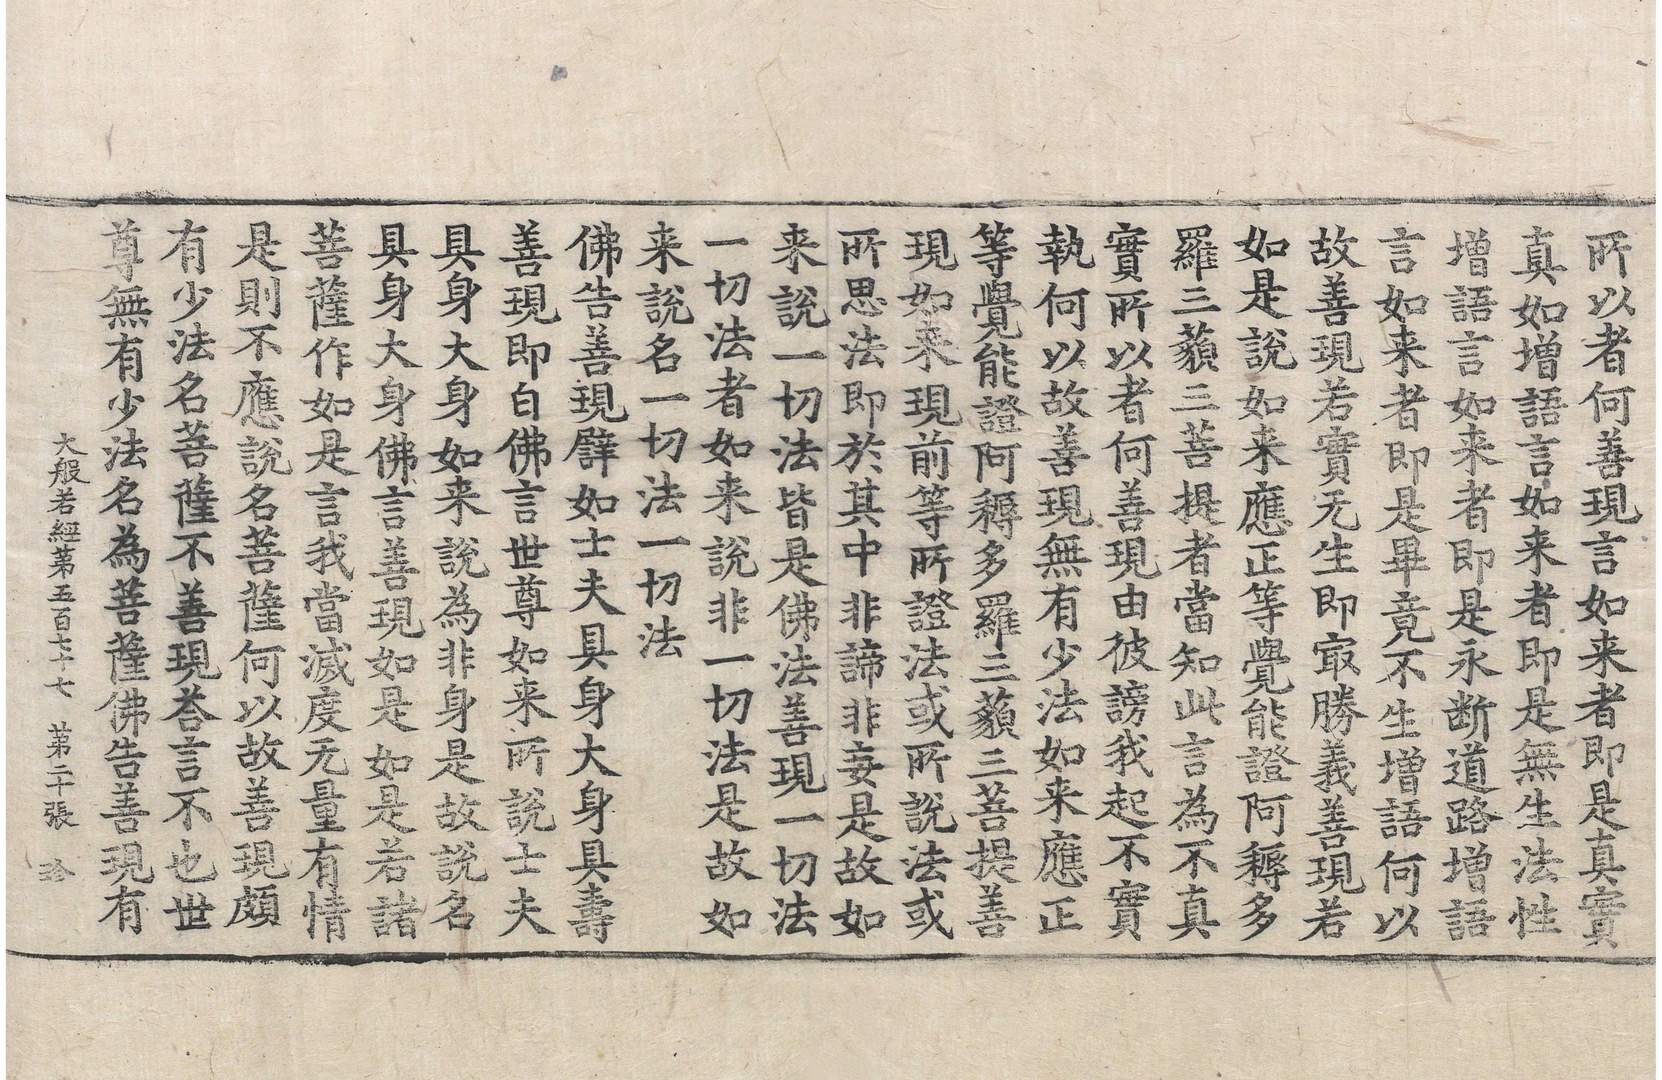 所以者何善現言如来者即是真實
真如増語言如来者即是無生法性
増語言如来者即是永断道路増語
言如来者即是畢竟不生増語何以
故善現若實无生即㝡勝義善現若
如是說如来應正等覺能證阿耨多
羅三藐三菩提者當知此言為不真
實所以者何善現由彼謗我起不實
執何以故善現無有少法如来應正
等覺能證阿耨多羅三藐三菩提善
現如来現前等所證法或所說法或
所思法即於其中非諦非妄是故如
来說一切法皆是佛法善現一切法
一切法者如来說非一切法是故如
来說名一切法一切法
佛告善現譬如士夫具身大身具壽
善現即白佛言世尊如来所說士夫
具身大身如来說為非身是故說名
具身大身佛言善現如是如是若諸
菩薩作如是言我當滅度无量有情
是則不應說名菩薩何以故善現頗
有少法名菩薩不善現荅言不也世
尊無有少法名為菩薩佛告善現有
大般若經第五百七十七　第二十張　珎